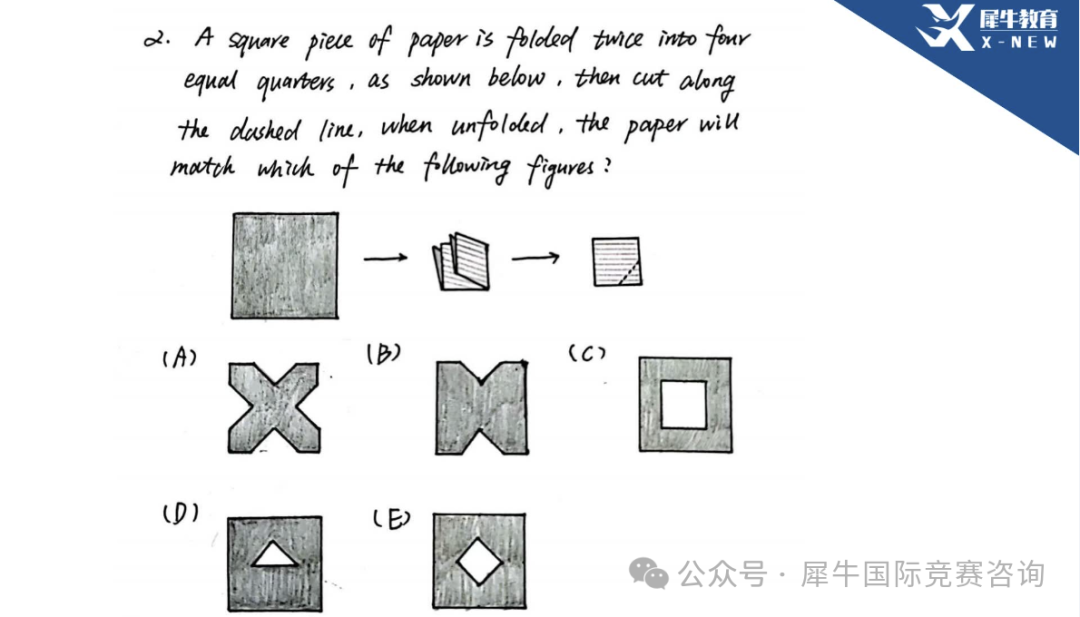 犀牛教育
X-NEW
2. A square piece of paper is folded twice into four
equal quarters, as shown below, then cut along
the dashed line, when unfolded, the paper will
match which of the following figures?
(A)
(B)
(C)
(D)
(E)
公众号 · 犀牛国际竞赛咨询